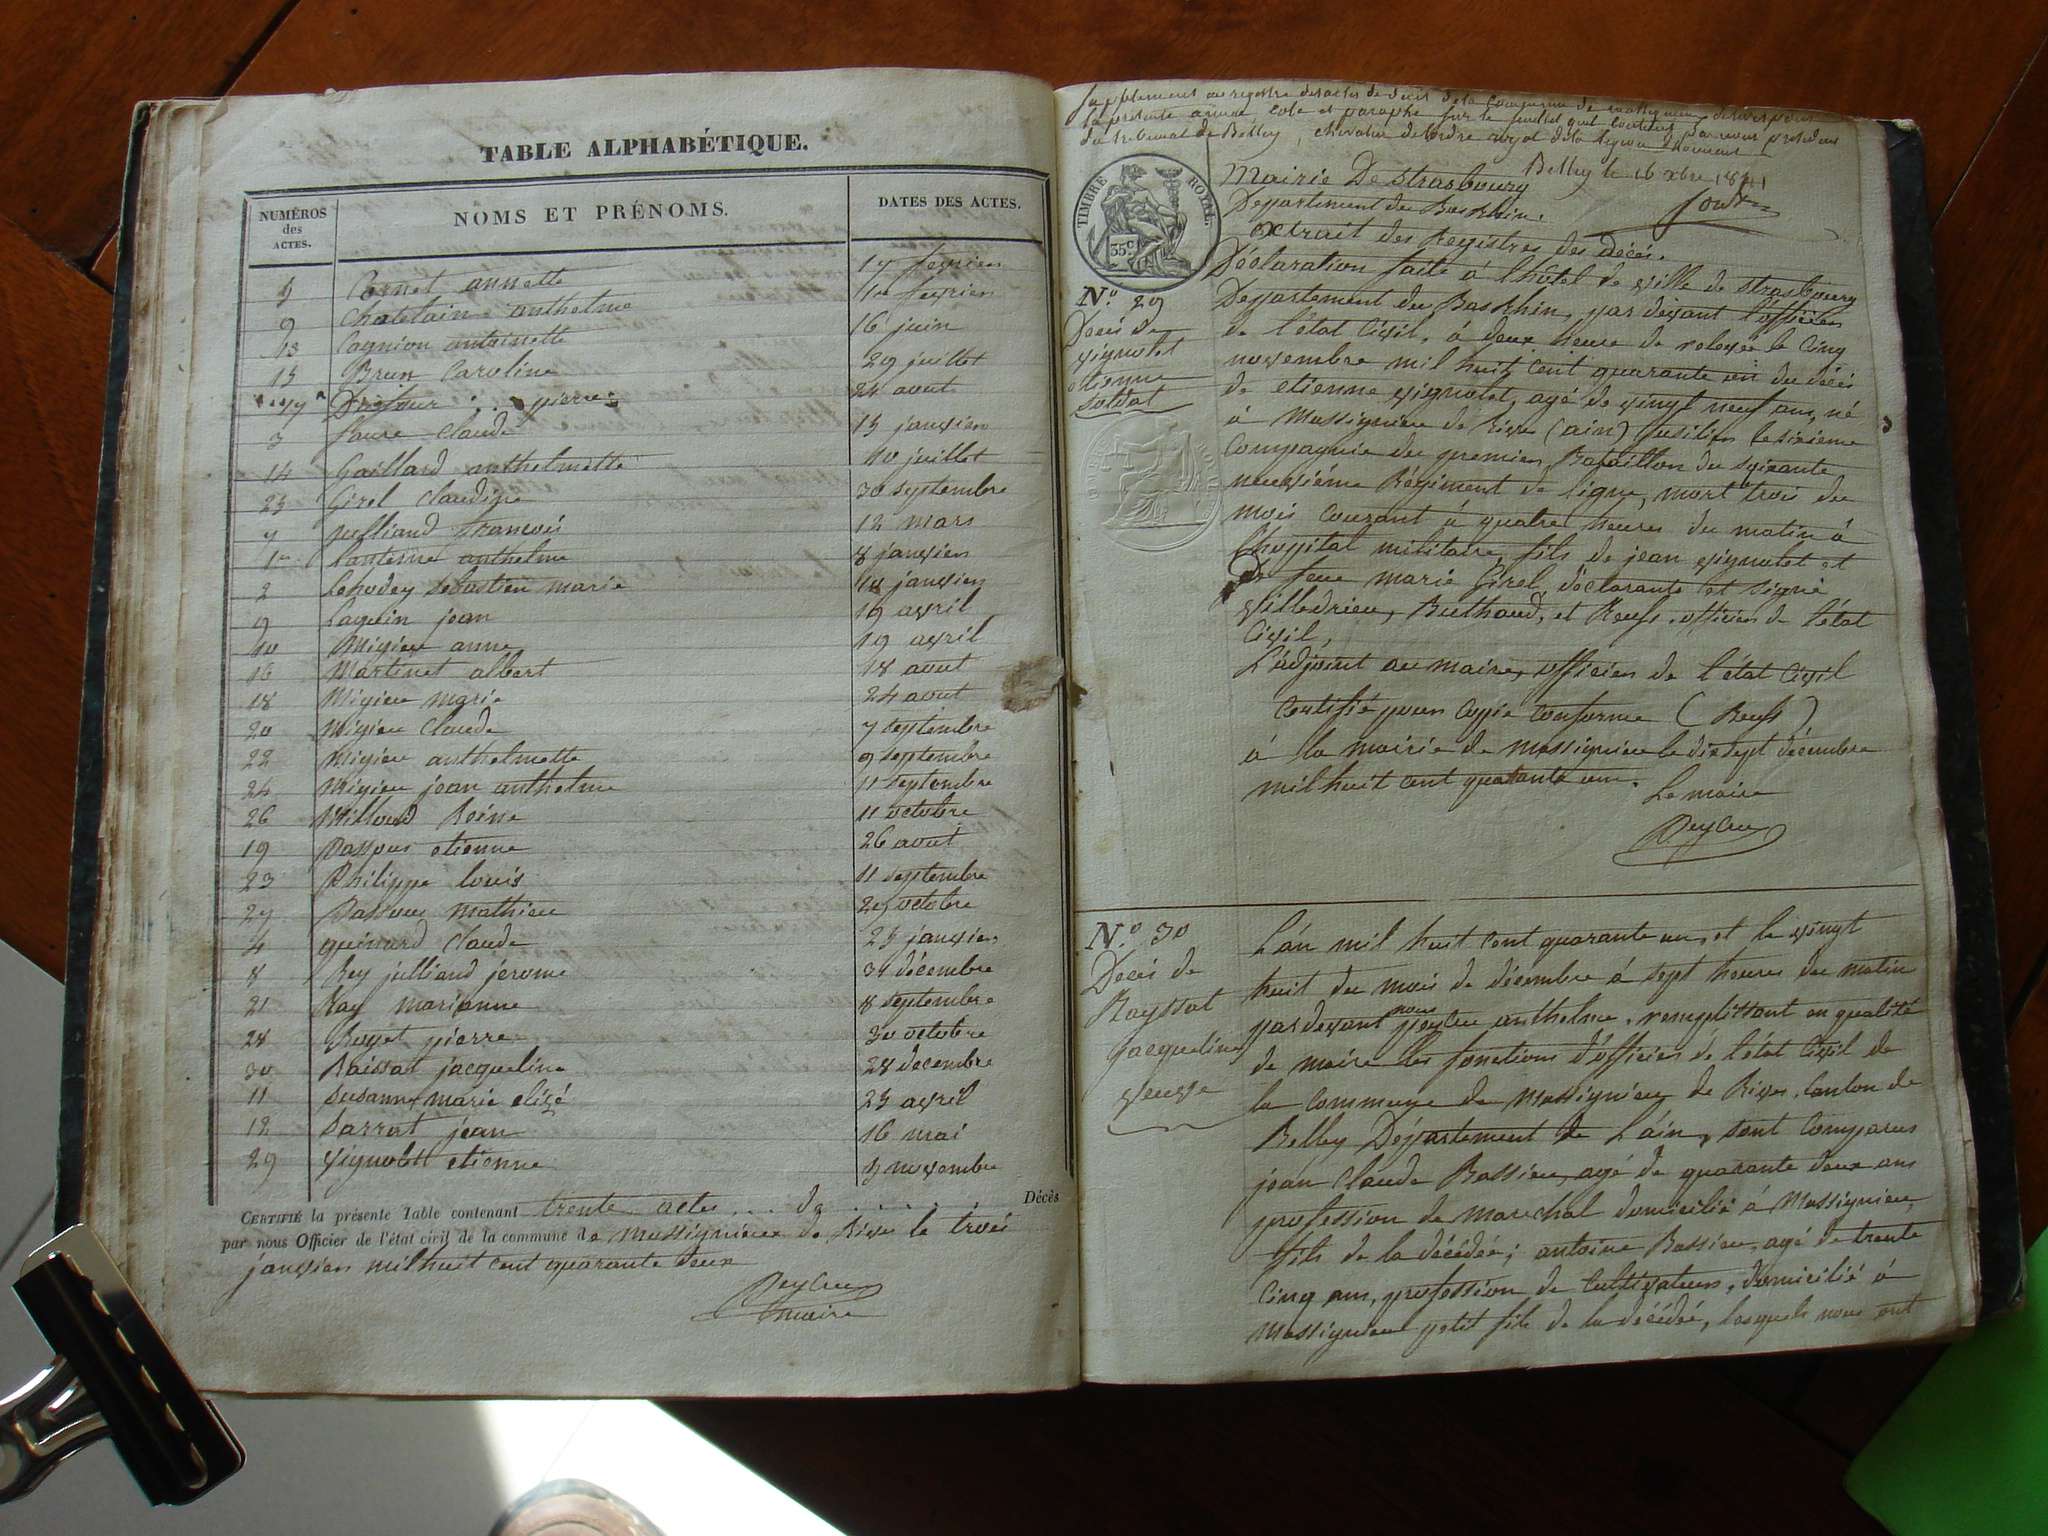 TABLE ALPHABÉTIQUE.
NUMÉROS des ACTES. NOMS ET PRÉNOMS. DATES DES ACTES.
5 Cornet annette 17 fevrier
6 Chatelain anthelme 1er fevrier
13 Cagnion antoinette 16 juin
15 Brun Caroline 29 juillet
17 pierre 22 aout
3 faure Claude 15 janvier
14 Gaillard anthelmette 10 juillet
25 Girel Claudine 30 septembre
7 Julliand francois 12 mars
1er anthelme 8 janvier
2 Sebastien marie 12 janvier
9 Laguin jean 19 avril
10 Migieu anne 19 avril
16 Martinet albert 18 aout
18 Migieu marie 24 aout
20 Migieu Claude 7 septembre
22 Migieu anthelmette 9 septembre
24 Migieu jean anthelme 11 septembre
26 Milloud Reine 11 octobre
19 etienne 26 aout
23 Philippe louis 11 septembre
27 mathieu 29 octobre
4 Claude 25 janvier
8 Rey julliand jerome 31 décembre
21 Ray marianne 8 septembre
28 Royet pierre 30 octobre
30 Raissat jacqueline 28 decembre
11 Susanne marie elisé 25 avril
12 Sarrat jean 16 mai
29 vignolet etienne 5 novembre
CERTIFIÉ la présente Table contenant trente actes ... de ..... Décès
par nous Officier de l'état civil de la commune de Massignieu de Rives le trois
janvier mil huit cent quarante deux
Peyzieu
maire
Supplement au registre des actes de décès de la Commune de Massignieu de rives pour
la présente année coté et paraphé sur le feuillet par nous president
du tribunal de Belley, chevalier de l'ordre royal de la légion d'honneur
Belley le 16 xbre 1841
TIMBRE ROYAL.
35 c.
Mairie De Strasbourg
Departement du Bas Rhin.
Extrait des Registres des Décès.
N.º 29
Décès de
vignolet
etienne
soldat
Déclaration faite à l'hôtel de ville de Strasbourg
Departement du Bas Rhin, par devant l'officier
de l'état Civil, à deux heure de relevée le Cinq
novembre mil huit cent quarante un du décès
de etienne vignolet, agé de vingt neuf ans, né
à Massignieu de Rives (ain) fusilier la sixieme
Compagnie du premier Bataillon du soixante
neuvième Régiment de ligne, mort trois du
mois Courant à quatre heures du matin à
l'hopital militaire, fils de jean vignolet et
De feue marie Girel, déclarante et signé
Villedrieu, Buthaud, et officier de l'état
Civil,
L'adjoint au maire, officier de l'état Civil
Certifié pour Copie Conforme
à la mairie de Massignieu le dix sept décembre
mil huit cent quarante un. Le maire
Peyzieu
N.º 30
Décès de
Rayssat
jacqueline
veuve
L'an mil huit cent quarante un, et le vingt
huit du mois de décembre à sept heures du matin
par devant nous anthelme, remplissant en qualité
de maire les fonctions d'officier de l'état Civil de
la Commune de Massignieu de Rives, Canton de
Belley Département de L'ain, sont Comparus
jean Claude Bassieu, agé de quarante deux ans
profession de marechal domicilié à Massignieu,
fils de la décédée; antoine Bassieu, agé de trente
cinq ans, profession de Cultivateur, domicilié à
Massignieu petit fils de la décédée, lesquels nous ont